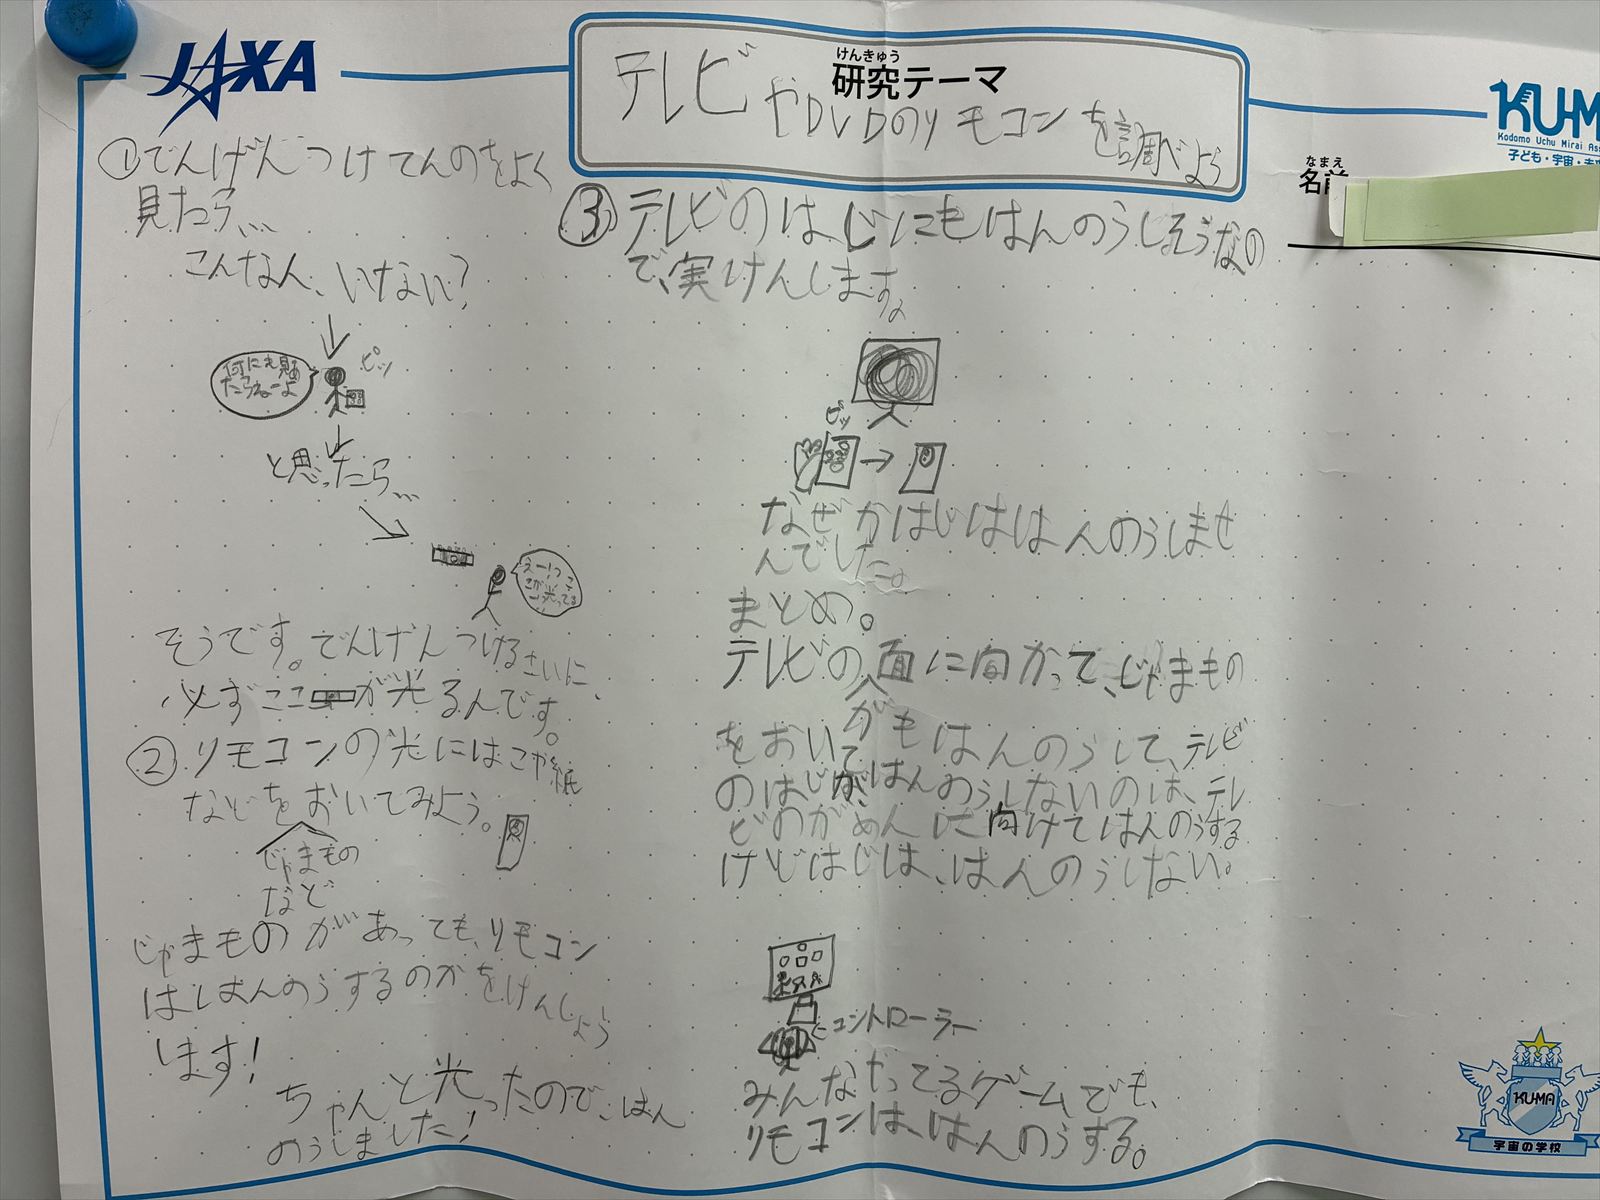 JAXA
けんきゅう
研究テーマ
テレビやDVDのリモコンを調べよう
KUMA
Kodomo Uchu Mirai Ass
子ども・宇宙・未
なまえ
名前
①でんげんつけてんのをよく
見たら、、、
こんなん、いけない?
ピッ
何にも見あ
たらねーよ
と思ったら、、、
えーっ!こ
こが光ってる
そうです。でんげんつけるさいに、
必ずここが光るんです。
②リモコンの光にはこや紙
などをおいてみよう。
じゃまもの
など
じゃまものがあっても、リモコン
ははんのうするのかをけんしょう
します!
ちゃんと光ったので、はん
のうしました!
③テレビのはじにもはんのうしそうなの
で、実けんします。
ピッ
なぜかはじははんのうしませ
んでした。
まとめ。
テレビの面に向かって、じゃまもの
が
をおいてもはんのうして、テレビ
のはじが、はんのうしないのは、テレ
ビのがめんに向けてはんのうする
けどはじは、はんのうしない。
コントローラー
みんなやってるゲームでも、
リモコンは、はんのうする。
KUMA
宇宙の学校